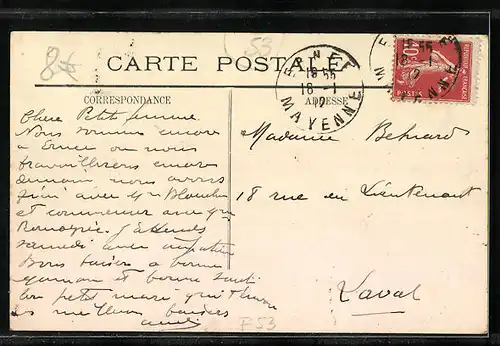 53
CARTE POSTALE
CORRESPONDANCE
ADRESSE
ERNEE
18 55
18 - 1
MAYENNE
REPUBLIQUE FRANÇAISE
10
POSTES
Chère Petite femme
Nous sommes encore
à Ernée ou nous
travaillerons encore
demain nous avons
fini avec
et commencer avec
J'attends
samedi avec
Bons baisers a bonne
maman et bonne santé
ton petit mari qui t'envoie
ses meilleurs baisers
Madame Behuard
18 rue du Lieutenant
Laval
F53